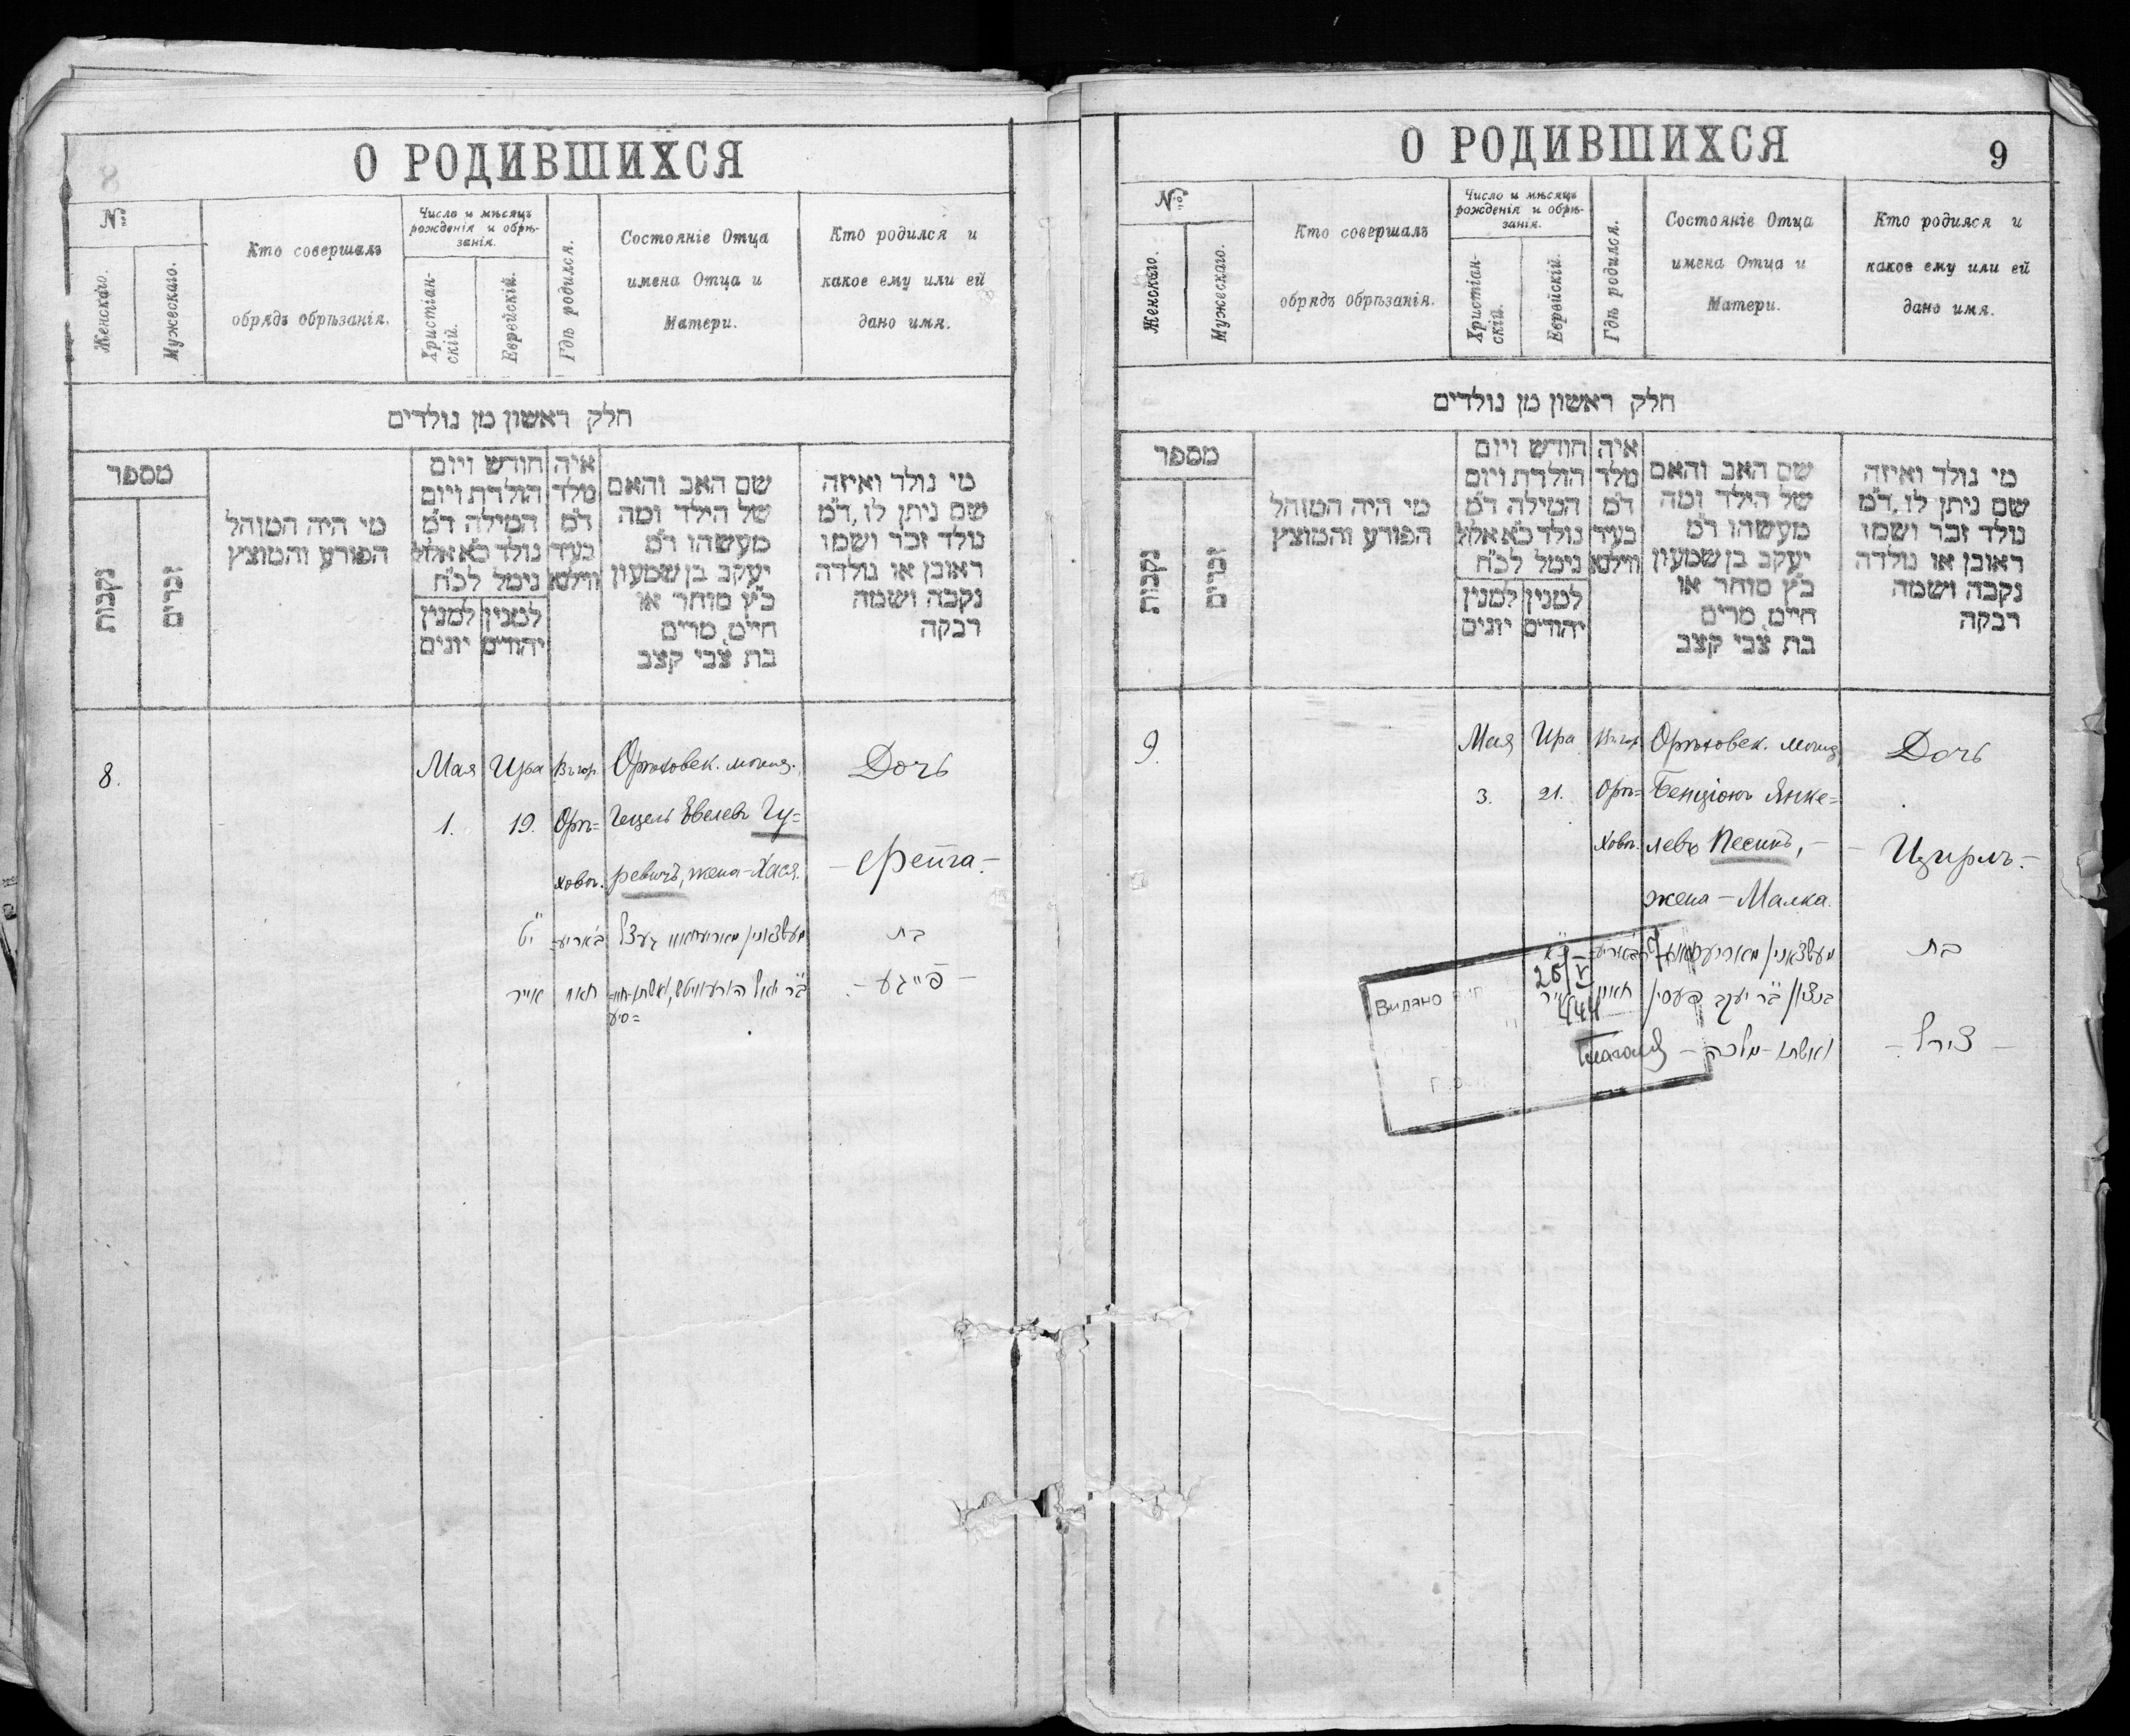 О РОДИВШИХСЯ
8
№
Женскаго.
Мужескаго.
Кто совершалъ
обрядъ обрѣзанія.
Число и мѣсяцъ
рожденія и обрѣ-
занія.
Христіан-
скій.
Еврейскій.
Гдѣ родился.
Состояніе Отца
имена Отца и
Матери.
Кто родился и
какое ему или ей
дано имя.
חלק ראשון מן נולדים
מספר
נקבות
זכרים
מי היה המוהל
הפורע והמוצץ
חודש ויום
הולדת ויום
המילה ד"מ
נולד כ"א אלול
נימל לכ"ח
למנין יהודים
למנין יונים
איה
מלד
ד"מ
בעיר
ווילנא
שם האב והאם
של הילד ומה
מעשהו ד"מ
יעקב בן שמעון
כ"ץ סוחר או
חיים, מרים
בת צבי קצב
מי נולד ואיזה
שם ניתן לו, ד"מ
נולד זכר ושמו
ראובן או נולדה
נקבה ושמה
רבקה
8.
Мая
1.
Ира
19.
Въ гор.
Орѣ=
ховѣ.
Орѣховск. мѣщ.
Гецель Евелевъ Гу=
ревичъ, жена - Хася.
Дочь
- Фейга -
י"ט
אייר
בת
- פייגע -
О РОДИВШИХСЯ
9
№
Женскаго.
Мужескаго.
Кто совершалъ
обрядъ обрѣзанія.
Число и мѣсяцъ
рожденія и обрѣ-
занія.
Христіан-
скій.
Еврейскій.
Гдѣ родился.
Состояніе Отца
имена Отца и
Матери.
Кто родился и
какое ему или ей
дано имя.
חלק ראשון מן נולדים
מספר
נקבות
זכרים
מי היה המוהל
הפורע והמוצץ
חודש ויום
הולדת ויום
המילה ד"מ
נולד כ"א אלול
נימל לכ"ח
למנין יהודים
למנין יונים
איה
מלד
ד"מ
בעיר
ווילנא
שם האב והאם
של הילד ומה
מעשהו ד"מ
יעקב בן שמעון
כ"ץ סוחר או
חיים, מרים
בת צבי קצב
מי נולד ואיזה
שם ניתן לו, ד"מ
נולד זכר ושמו
ראובן או נולדה
נקבה ושמה
רבקה
9.
Мая
3.
Ира
21.
Въ гор.
Орѣ=
ховѣ.
Орѣховск. мѣщ.
Бенціонъ Янке=
левъ Песинъ, -
жена - Малка.
Дочь
- Цирль. -
בנציון ב"ר יעקב פעסין
ואשתו - מלכה -
בת
- צירל -
Видано
25/V
444